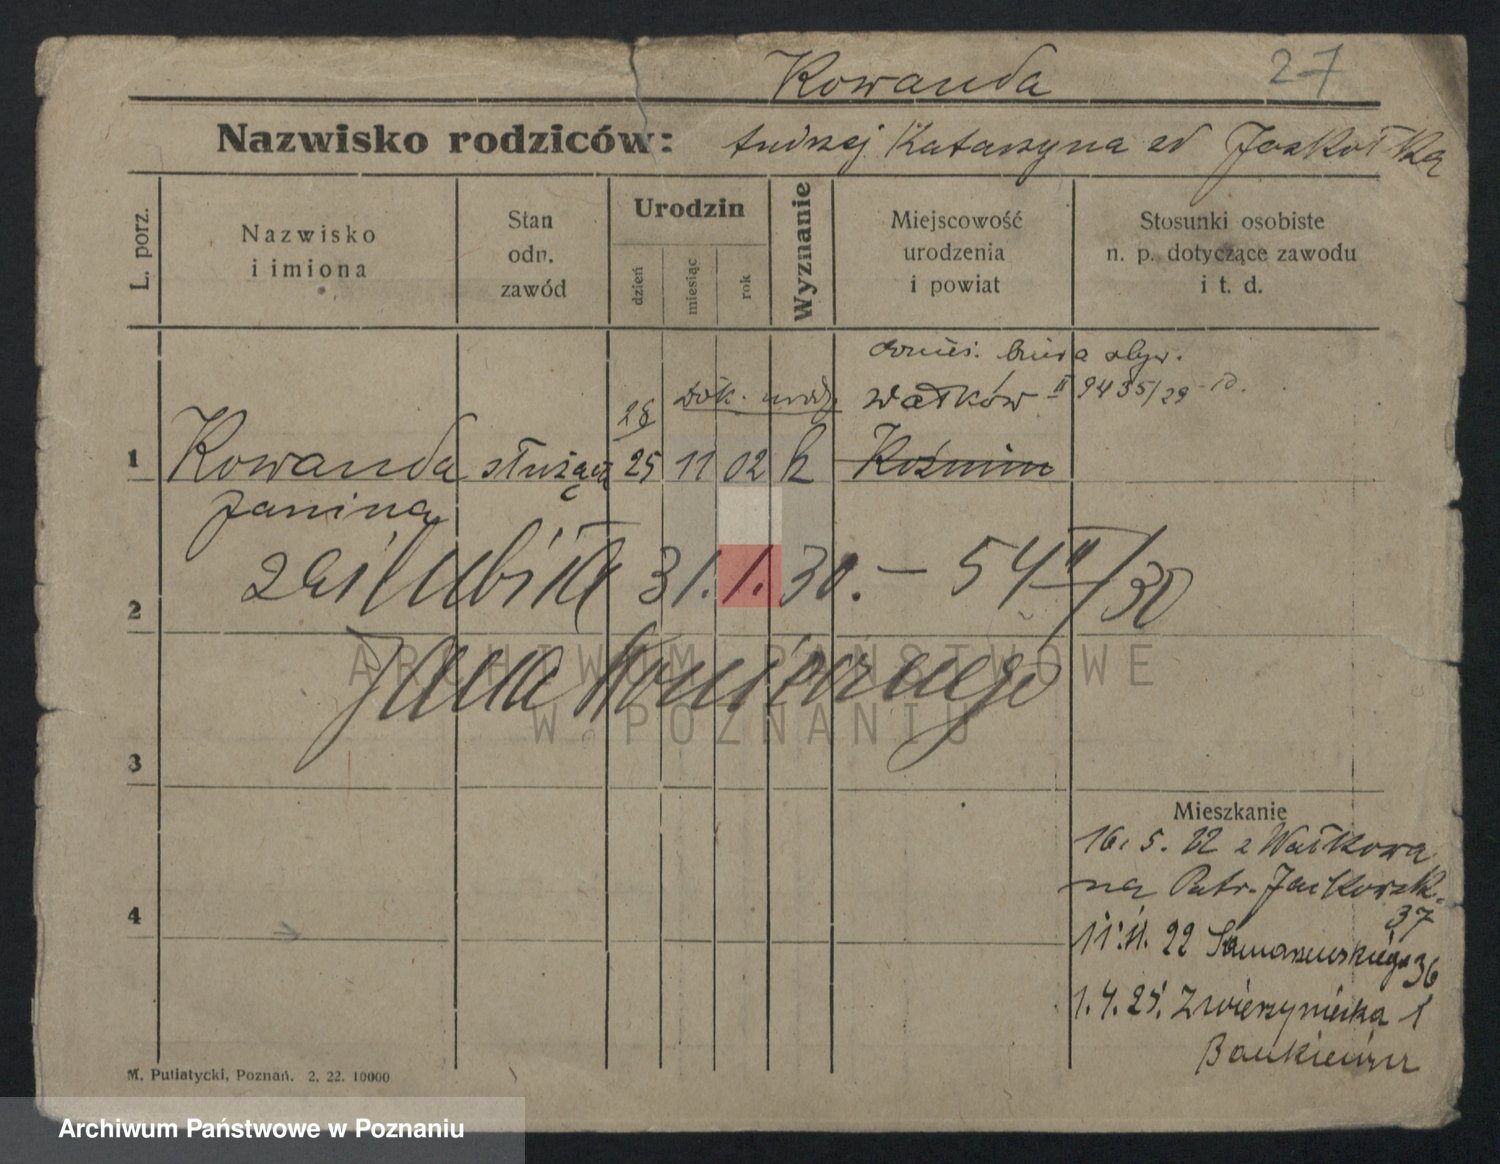 Kowanda 27
Nazwisko rodziców: Andrzej Katarzyna zd Jaskółka
L. porz.
Nazwisko
i imiona
Stan
odn.
zawód
Urodzin
dzień
miesiąc
rok
Wyznanie
Miejscowość
urodzenia
i powiat
Stosunki osobiste
n. p. dotyczące zawodu
i t. d.
donies. biura
Dok. urodz. Wałków II 9435/29
26
1 Kowanda służąca 25 11 02 k Koźmin
Janina
zaślubiła 31.1.30. — 54 II/30
2
Jana
ARCHIWUM PAŃSTWOWE
W POZNANIU
3
Mieszkanie
16. 5. 22 z Wałkowa
na Patr. Jackowsk.
37
4
11.11. 22 Samarzewskiego 36
1.4.25. Zwierzyniecka 1
M. Putiatycki, Poznań. 2. 22. 10000
Archiwum Państwowe w Poznaniu